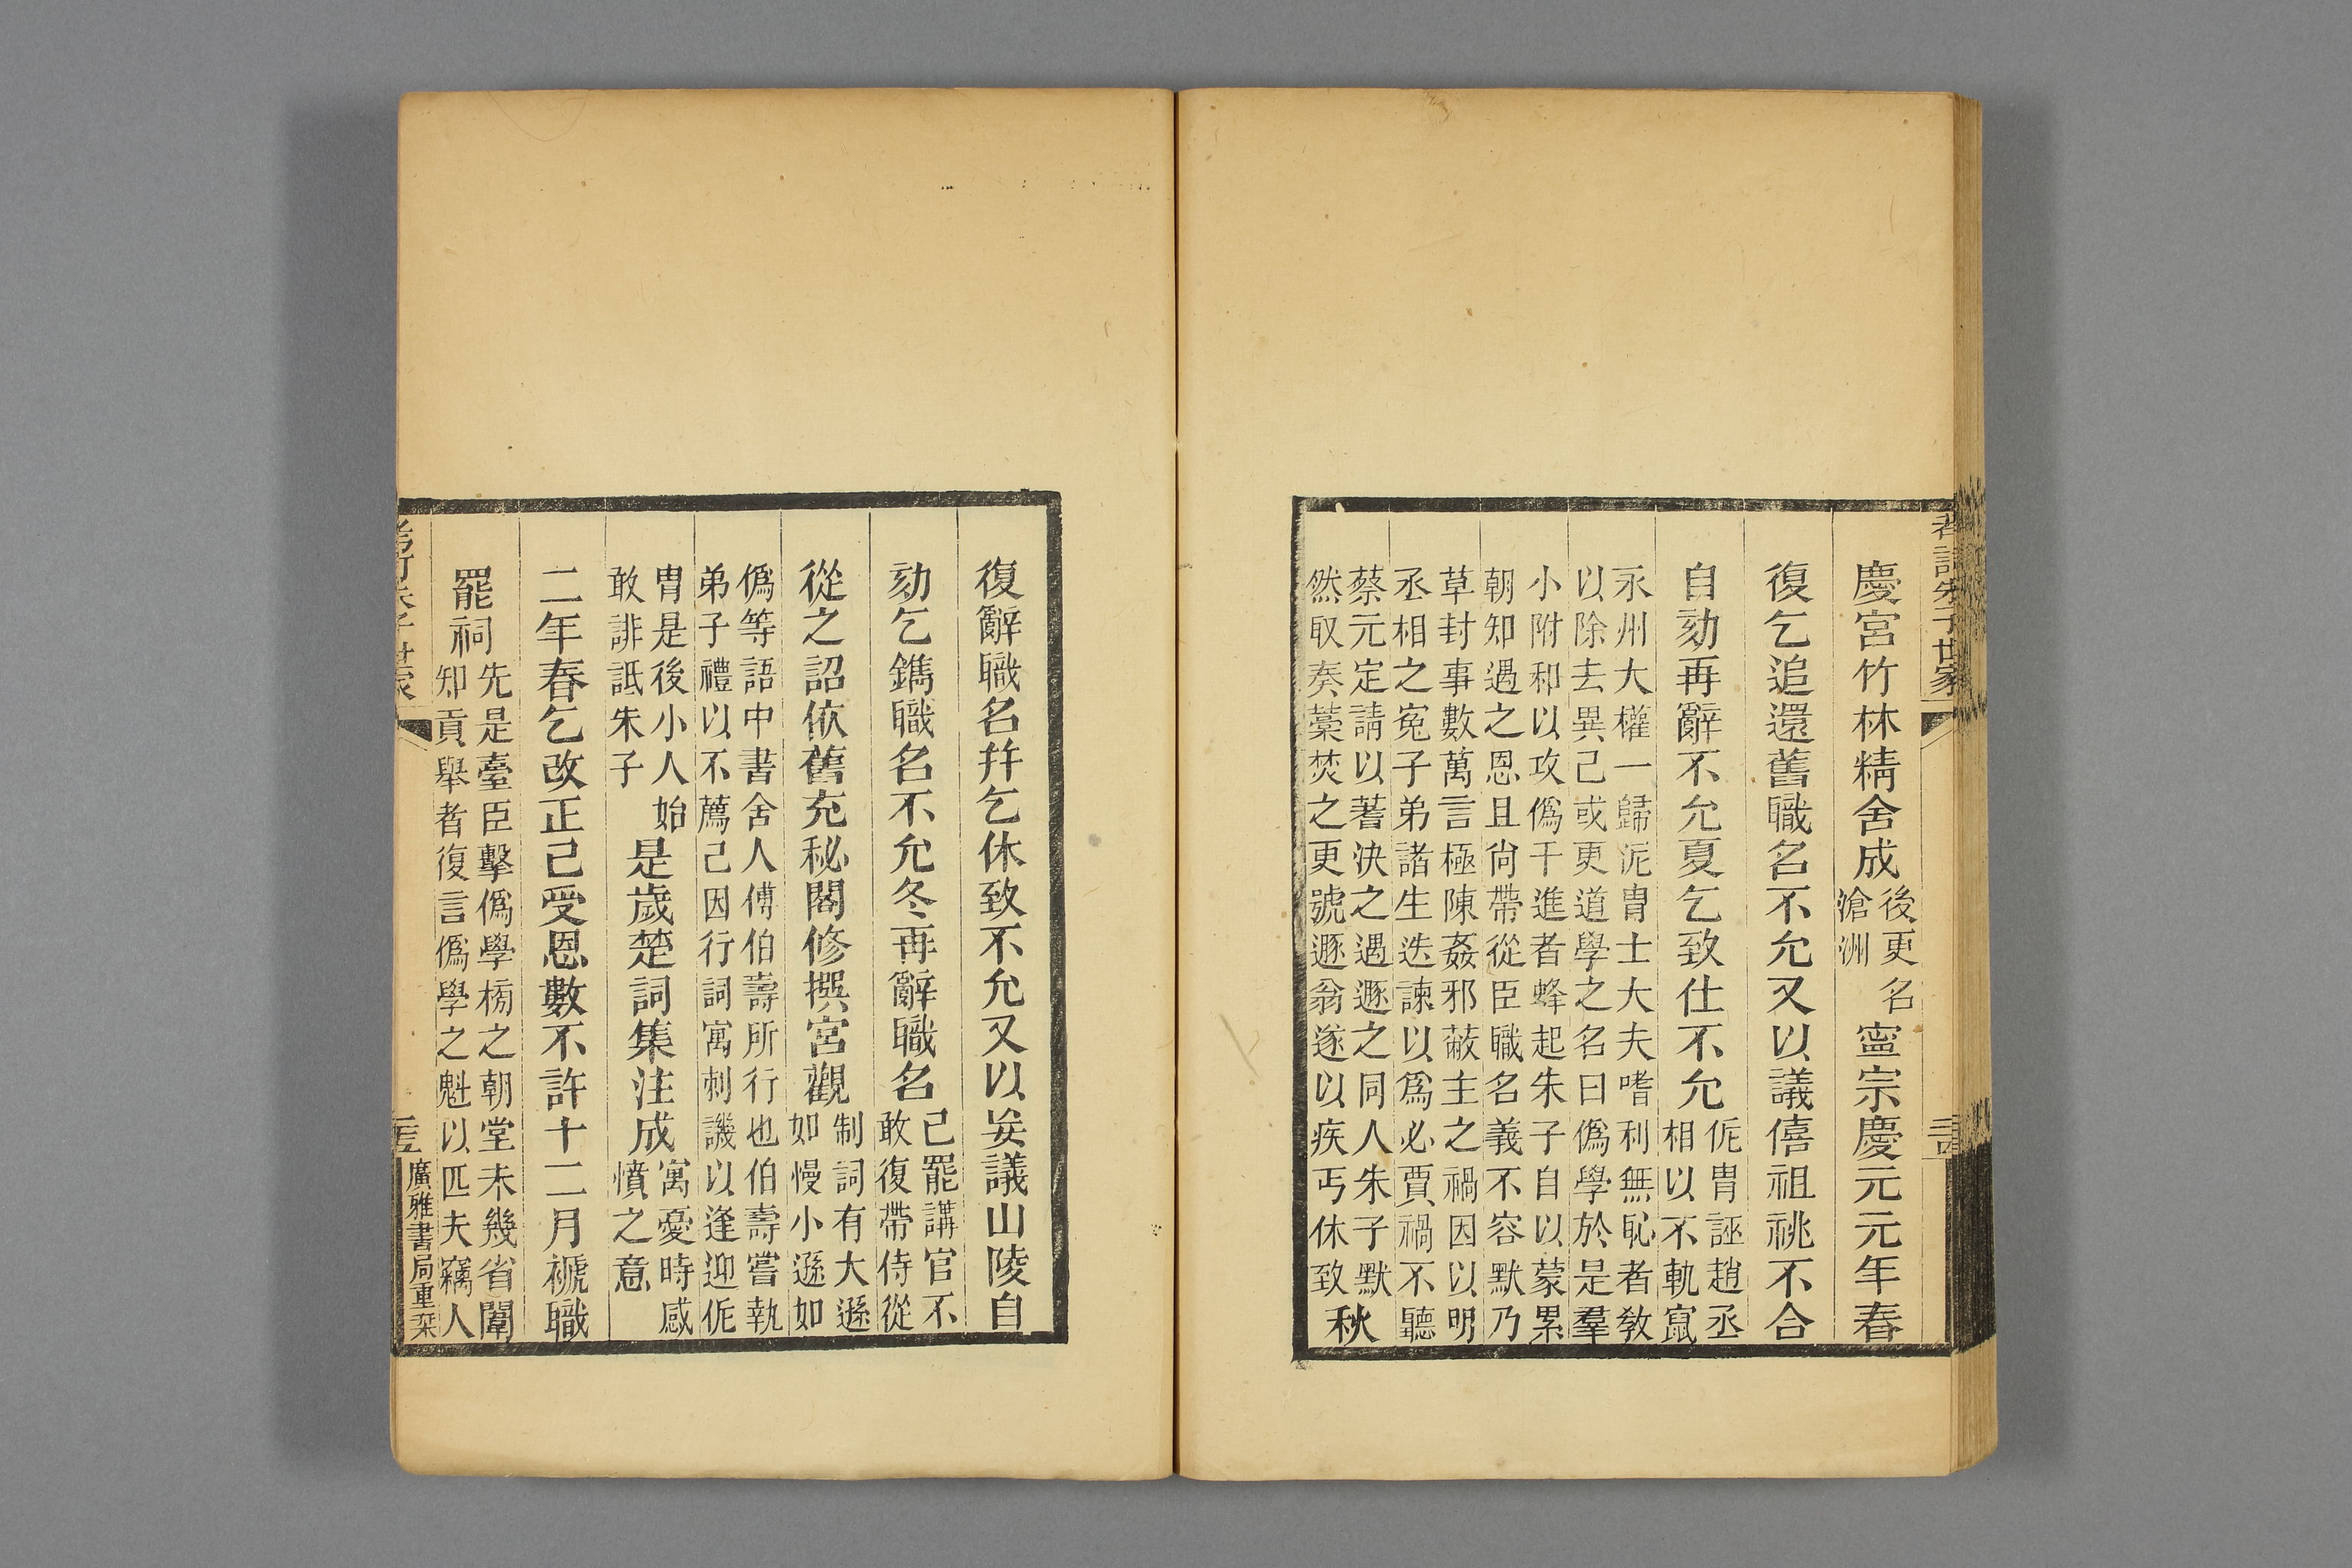 考訂朱子世家
三四
慶宮竹林精舍成
後更名
滄洲
寧宗慶元元年春
復乞追還舊職名不允又以議僖祖祧不合
自劾再辭不允夏乞致仕不允
侂冑誣趙丞
相以不軌竄
永州大權一歸侂冑士大夫嗜利無恥者敎
以除去異己或更道學之名曰僞學於是羣
小附和以攻僞干進者蜂起朱子自以蒙累
朝知遇之恩且尙帶從臣職名義不容默乃
草封事數萬言極陳姦邪蔽主之禍因以明
丞相之冤子弟諸生迭諫以爲必賈禍不聽
蔡元定請以蓍決之遇遯之同人朱子默
然取奏藁焚之更號遯翁遂以疾丐休致
秋
復辭職名幷乞休致不允又以妄議山陵自
劾乞鐫職名不允冬再辭職名
己罷講官不
敢復帶侍從
從之詔依舊充秘閣修撰宮觀
制詞有大遜
如慢小遜如
僞等語中書舍人傅伯壽所行也伯壽嘗執
弟子禮以不薦己因行詞寓刺譏以逢迎侂
冑是後小人始
敢誹詆朱子
是歲楚詞集注成
寓憂時感
憤之意
二年春乞改正己受恩數不許十二月褫職
罷祠
先是臺臣擊僞學榜之朝堂未幾省闈
知貢舉者復言僞學之魁以匹夫竊人
考訂朱子世家
三五
廣雅書局重栞